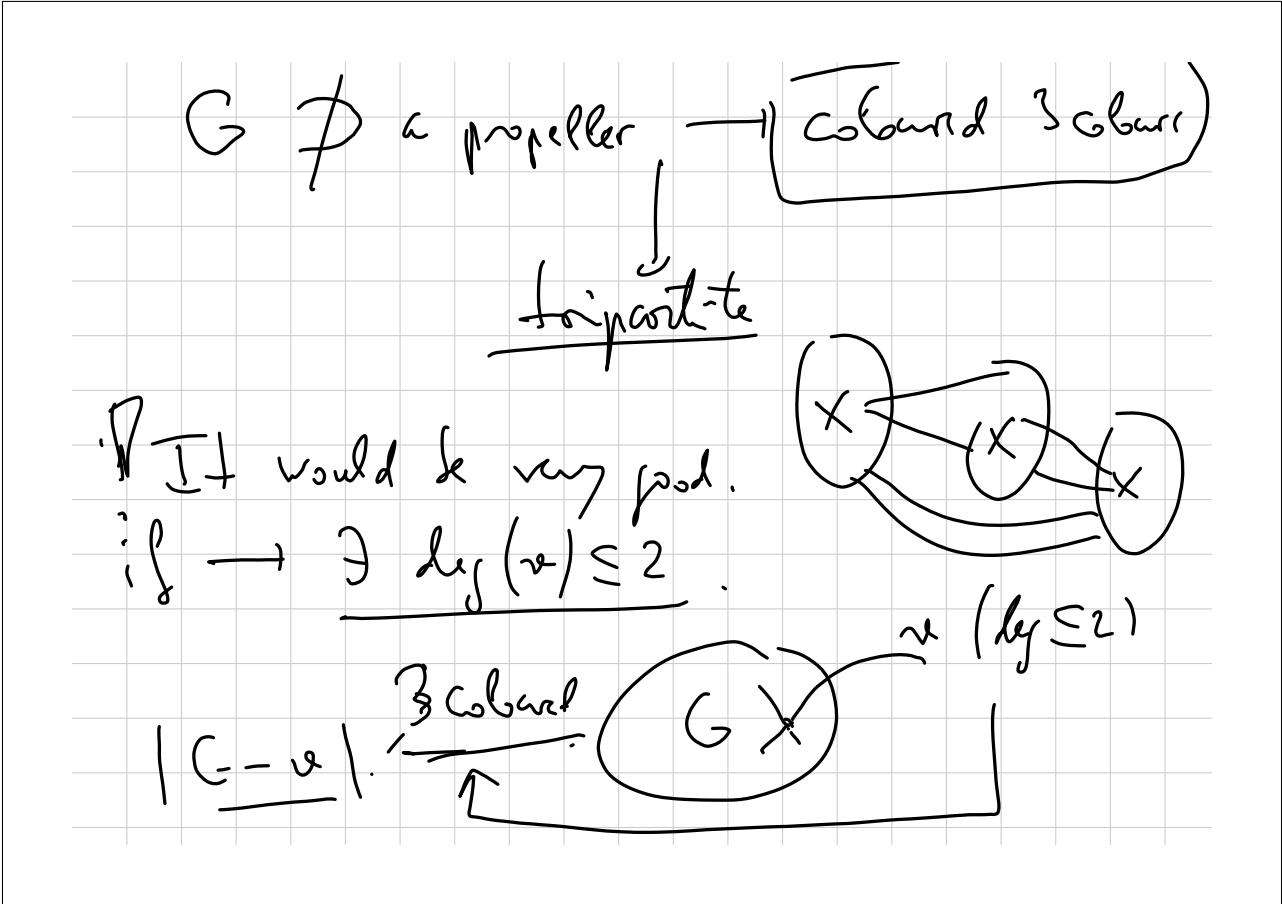 G ⊅ a propeller → coloured 3 colours
tripartite
It would be very good.
if → ∃ deg(v) ≤ 2.
v (deg ≤ 2)
3 coloured
G
|G - v|.